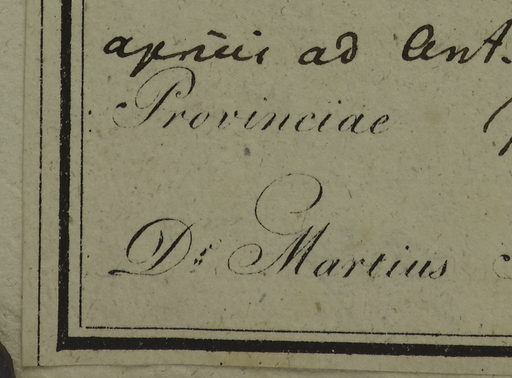 ad Ant.
Provinciae
Dr. Martius